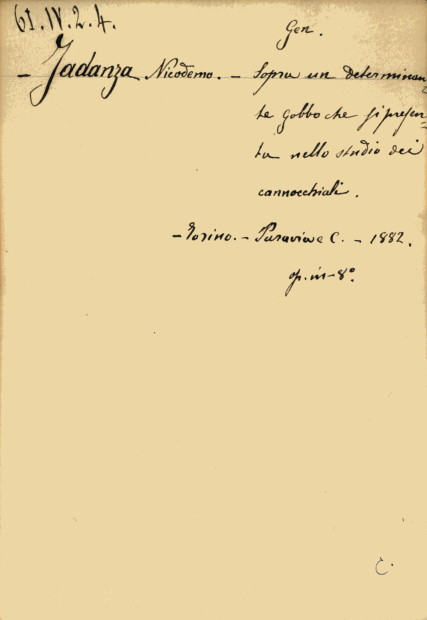 61.IV.2.4.
Gen.
- Jadanza Nicodemo. - Sopra un determinan=
te gobbo che si presen=
ta nello studio dei
cannocchiali.
- Torino. - Paravia e C. - 1882.
op. in-8°
C.